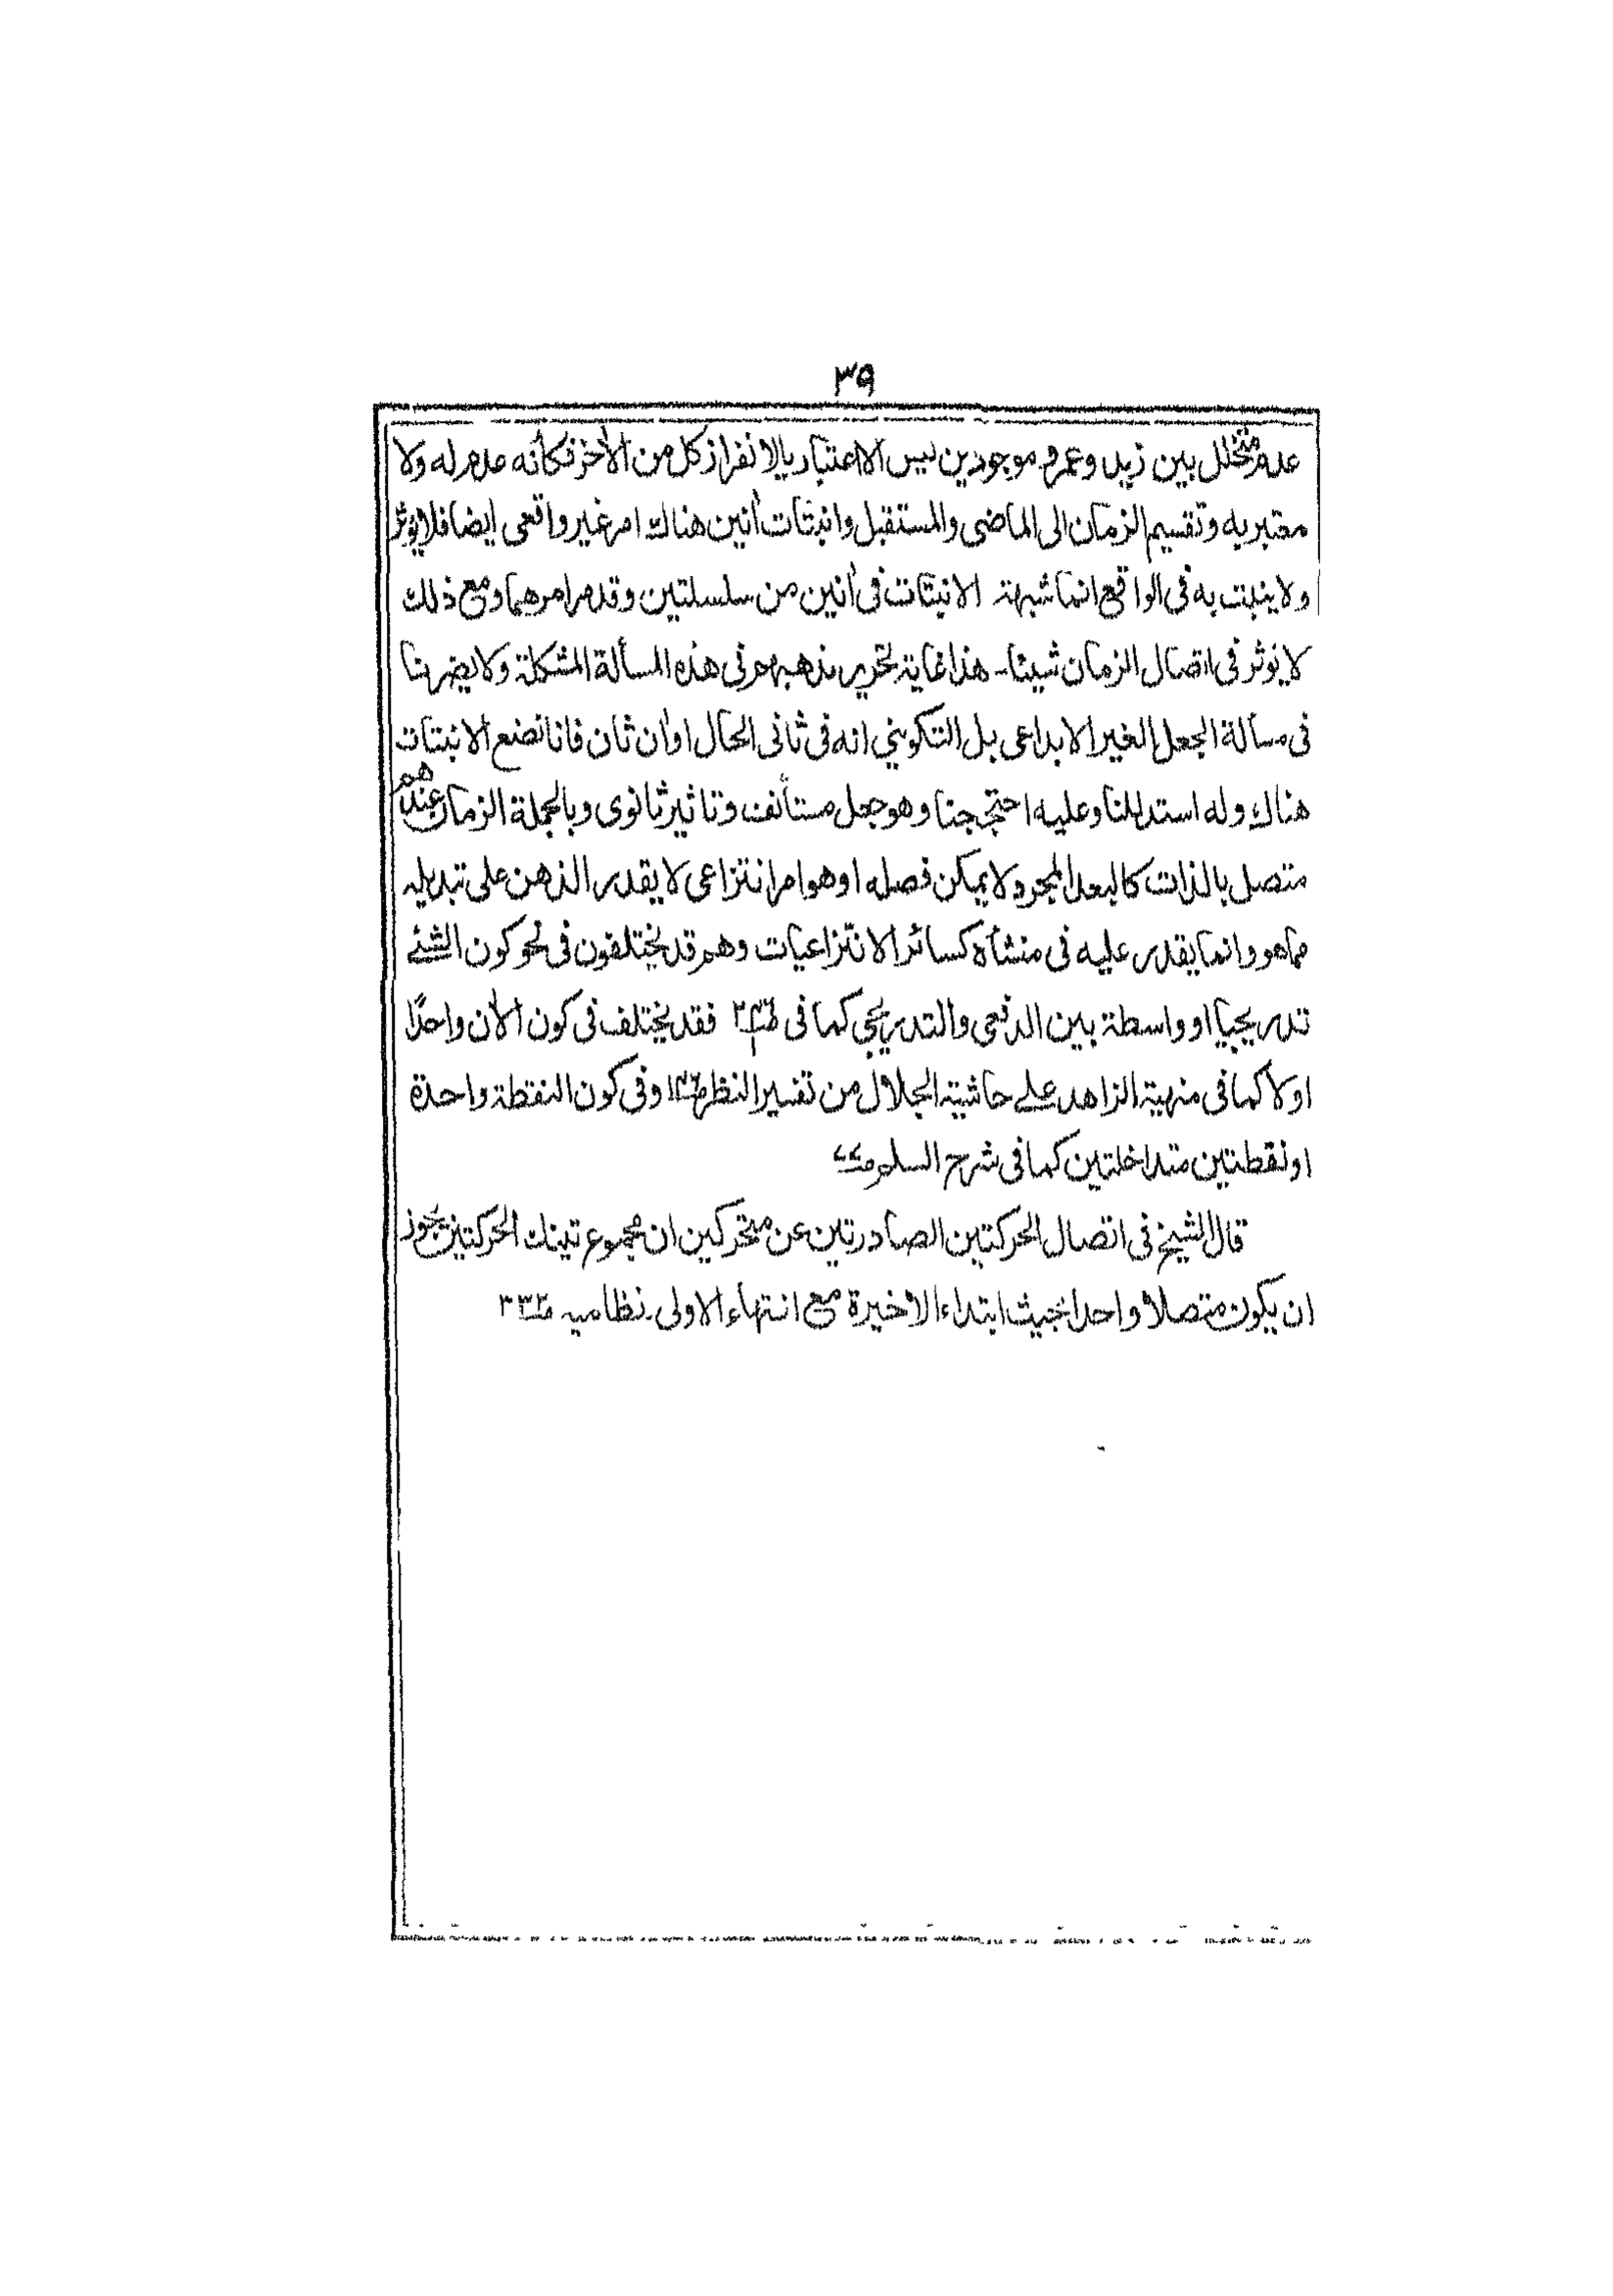 ٣٩
عدم متخلل بين زيد وعمرو موجودين ليس الاعتبار بالانفراز كل من الأخر فكأنه عدم له ولا
معتبر به وتقسيم الزمان الى الماضى والمستقبل وانبتات أنين هناك امر غير واقعى ايضا فلا يؤثر
ولا ينبت به فى الواقع انما شبهة الانبتات فى أنين من سلسلتين وقد مر امرهما ومع ذلك
لا يؤثر فى اتصال الزمان شيئا۔ هذا غاية تحرير مذهبهم فى هذه المسألة المشكلة ولا يضرنا
فى مسألة الجعل الغير الابداعى بل التكوينى انه فى ثانى الحال او أن ثان فانا نضع الانبتات
هناك وله استدللنا وعليه احتججنا وهو جعل مستأنف وتاثير ثانوى وبالجملة الزمان عندهم
متصل بالذات كالبعد المجرد لا يمكن فصله او هو امر انتزاعى لا يقدر الذهن على تبديله
مما هو وانما يقدر عليه فى منشأه كسائر الانتزاعيات وهم قد يختلفون فى نحو كون الشئ
تدريجيا او واسطة بين الدفعى والتدريجى كما فى فقد يختلف فى كون الأن واحدًا
اولا كما فى منهية الزاهد على حاشية الجلال من تفسير النظر وفى كون النقطة واحدة
او نقطتين متداخلتين كما فى شرح السلم
قال الشيخ فى اتصال الحركتين الصادرتين عن متحركين ان مجموع تينك الحركتين يجوز
ان يكون متصلا واحدا بحيث ابتداء الاخيرة مع انتهاء الاولى۔ نظاميه